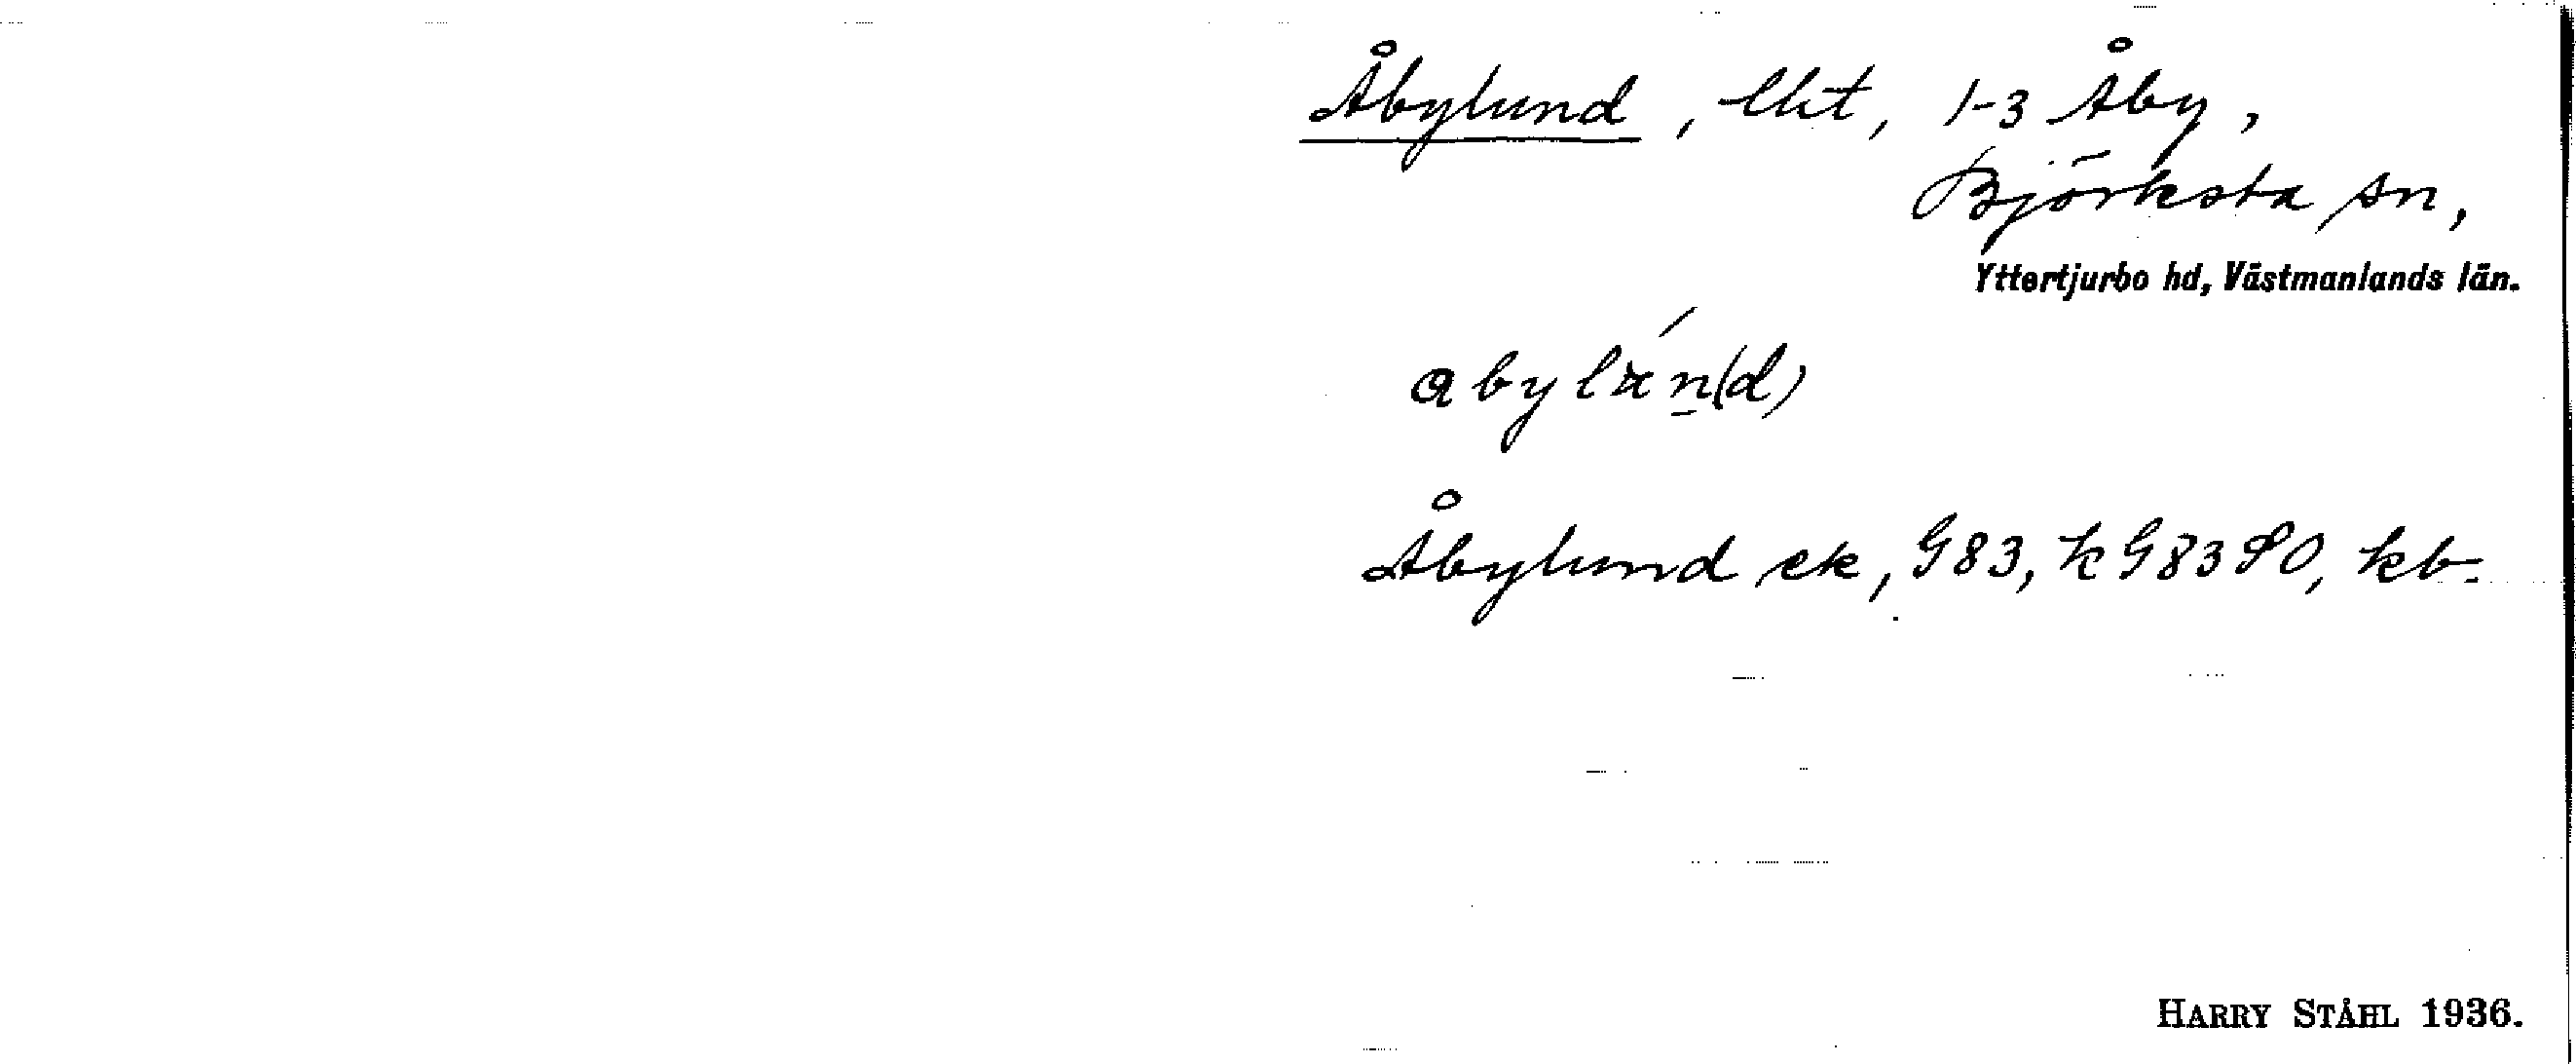 Åbylund, lht, 1-3 Åby,
Björksta sn,
Yttertjurbo hd, Västmanlands län.
Åbylund ek, G83, k G83 SO, kb.
HARRY STÅHL 1936.